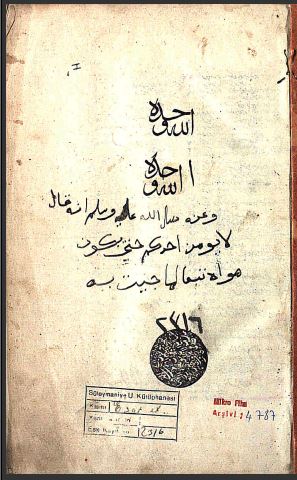 الله وحده
الله وحده
وعنه صلى الله عليه وسلم انه قال
لا يومن احدكم حتى يكون
هواه تبعا لما جيت به
٢٣١٦
Süleymaniye U. Kütüphanesi
Kısmı Esad ef.
Eski Kayıt No. 2316
Mikro Film
Arşivi: 4787